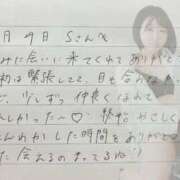 月9日 Sさんへ
に会いに来てくれてありがと
初は緊張してて、目も合わな
、少しずつ仲良くなれて
しかった〜♡
やさしく
んわかした時間をありがと
た会えるのまってるね